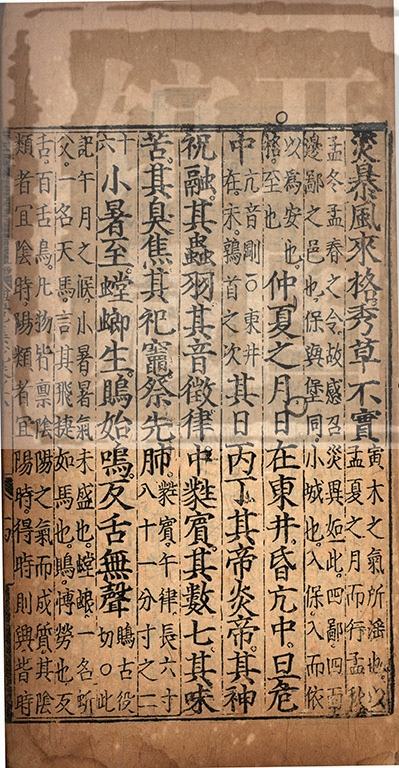 災暴風來格秀草不實寅木之氣所淫也以孟夏之月而行孟秋
孟冬孟春之令故感召災異如此四鄙四面
邊鄙之邑也保與堡同小城也入保入而依
以為安也格至也仲夏之月日在東井昏亢中旦危
中亢音剛○東井在未鶉首之次其日丙丁其帝炎帝其神
祝融其蟲羽其音徵律中蕤賓其數七其味
苦其臭焦其祀竈祭先肺蕤賓午律長六寸八十一分寸之二
十六小暑至螳螂生鵙始鳴反舌無聲鵙古役切○此
記午月之候小暑暑氣未盛也螳蜋一名蚚
父一名天馬言其飛捷如馬也鵙博勞也反
舌百舌鳥凡物皆稟陰陽之氣而成質其陰
類者宜陰時陽類者宜陽時得時則興背時